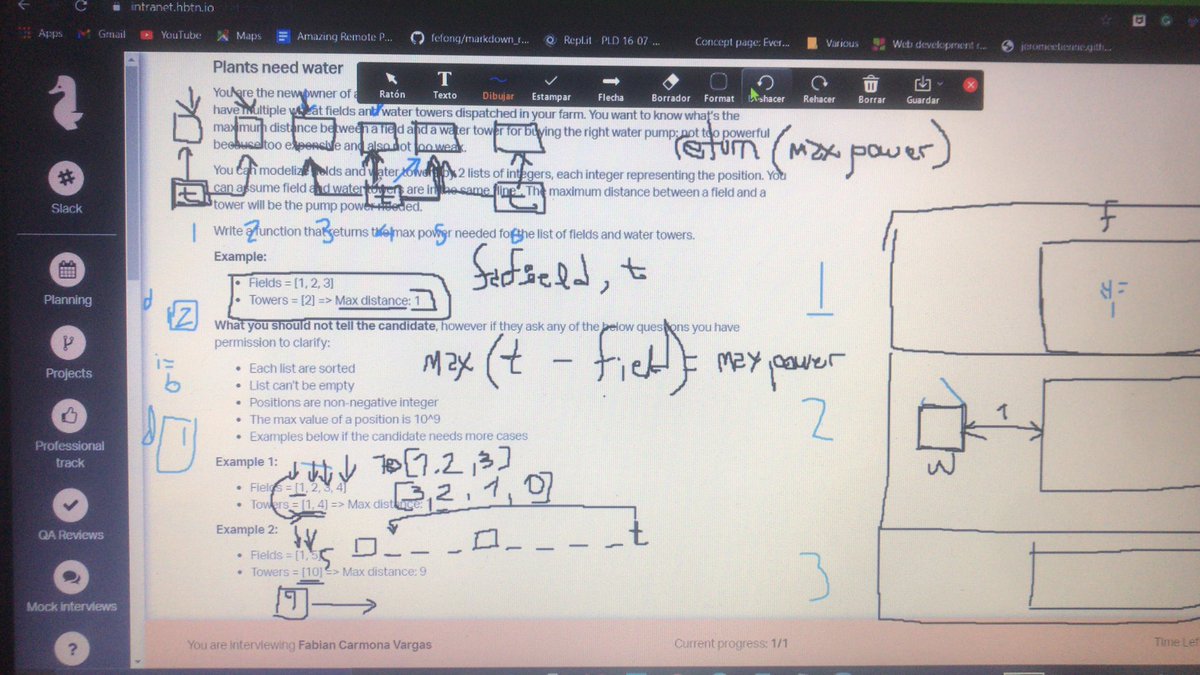 intranet.hbtn.io
Apps Gmail YouTube Maps Amazing Remote P... fefong/markdown_r... Repl.it - PLD 16-07 ... Concept page: Ever... Various Web development r... jeromeetienne.gith...
Ratón Texto Dibujar Estampar Flecha Borrador Format Deshacer Rehacer Borrar Guardar
Plants need water
You are the new owner of a
have multiple wheat fields and water towers dispatched in your farm. You want to know what's the
maximum distance between a field and a water tower for buying the right water pump: not too powerful
because too expensive and also not too weak.
return (max power)
You can modelize fields and water towers by 2 lists of integers, each integer representing the position. You
can assume field and water towers are in the same "line". The maximum distance between a field and a
tower will be the pump power needed.
t t t
1 2 3 4 5 6
Write a function that returns the max power needed for the list of fields and water towers.
Example:
Fields = [1, 2, 3]
Towers = [2] => Max distance: 1
What you should not tell the candidate, however if they ask any of the below questions you have
permission to clarify:
max (t - field) = max power
Each list are sorted
List can't be empty
Positions are non-negative integer
The max value of a position is 10^9
Examples below if the candidate needs more cases
Example 1:
[1, 2, 3]
Fields = [1, 2, 3, 4]
[3, 2, 1, 0]
Towers = [1, 4] => Max distance: 1
Example 2:
t
Fields = [1, 5]
5
Towers = [10] => Max distance: 9
9
d
2
i=
b
d
1
1
2
3
f
1
W
Slack
Planning
Projects
Professional
track
QA Reviews
Mock interviews
?
You are interviewing Fabian Carmona Vargas
Current progress: 1/1
Time Lef